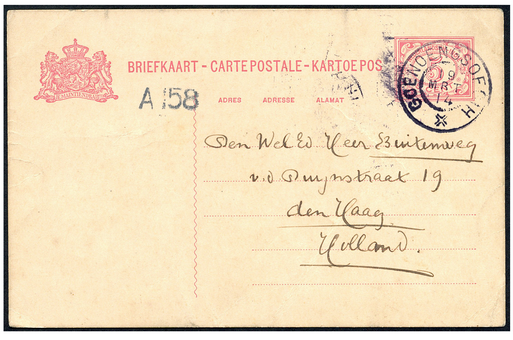 BRIEFKAART - CARTE POSTALE - KARTOE POS
GOENOENGSOEGIH
9
MRT
14
A 158
ADRES ADRESSE ALAMAT
Den Wel Ed Heer Buitenweg
v.d Duynstraat 19
den Haag
Holland.